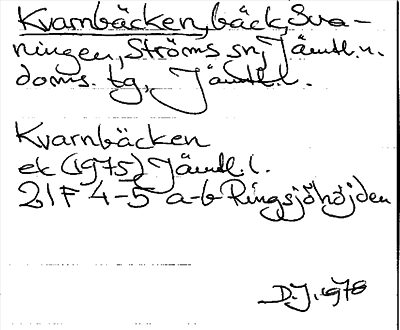 Kvarnbäcken, bäck, Sva-
ningen, Ströms sn, Jämtl. n.
doms. tg, Jämtl. l.
Kvarnbäcken
ek (1975) Jämtl. l.
21F 4-5 a-b Ringsjöhöjden
D.J. 1978